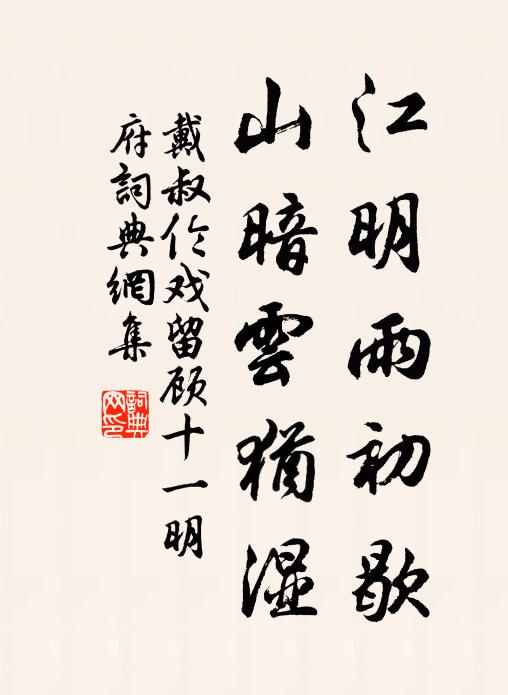 江明雨初歇
山暗雲猶濕
戴叔伦戏留顾十一明
府詞典網集
詞典
网印